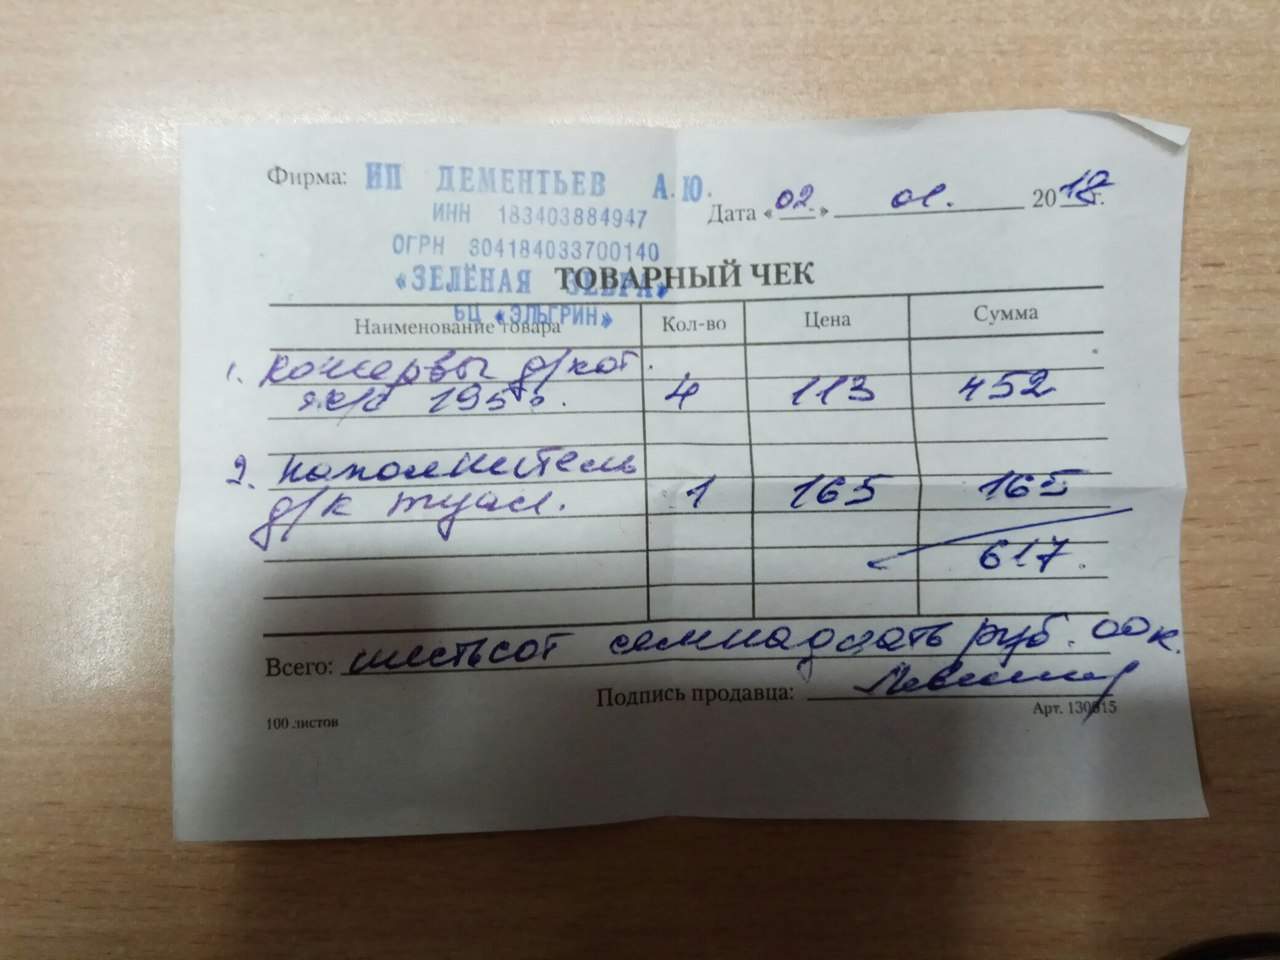 Фирма: ИП ДЕМЕНТЬЕВ А.Ю.
ИНН 183403884947
Дата «02» 01. 2018г.
ОГРН 304184033700140
«ЗЕЛЁНАЯ ЗЕБРА»
ТОВАРНЫЙ ЧЕК
БЦ «ЭЛЬГРИН»
Наименование товара Кол-во Цена Сумма
1. Консервы д/кот.
ж/б 195г. 4 113 452
2. Наполнитель
д/к туал. 1 165 165
617.
Всего: шестьсот семнадцать руб. 00к.
Подпись продавца:
100 листов
Арт. 130315